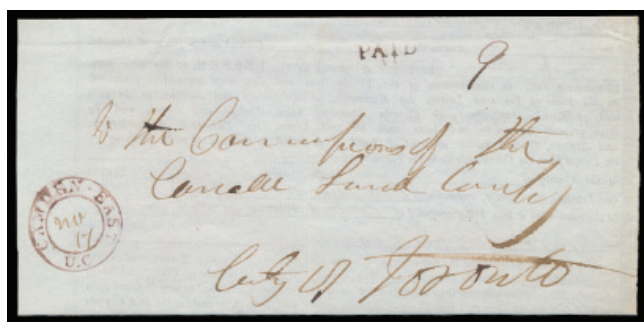 PAID 9
To the Commissioners of the
Canada Land Comp'y
City of Toronto
CAMDEN-EAST
Nov
17
U.C